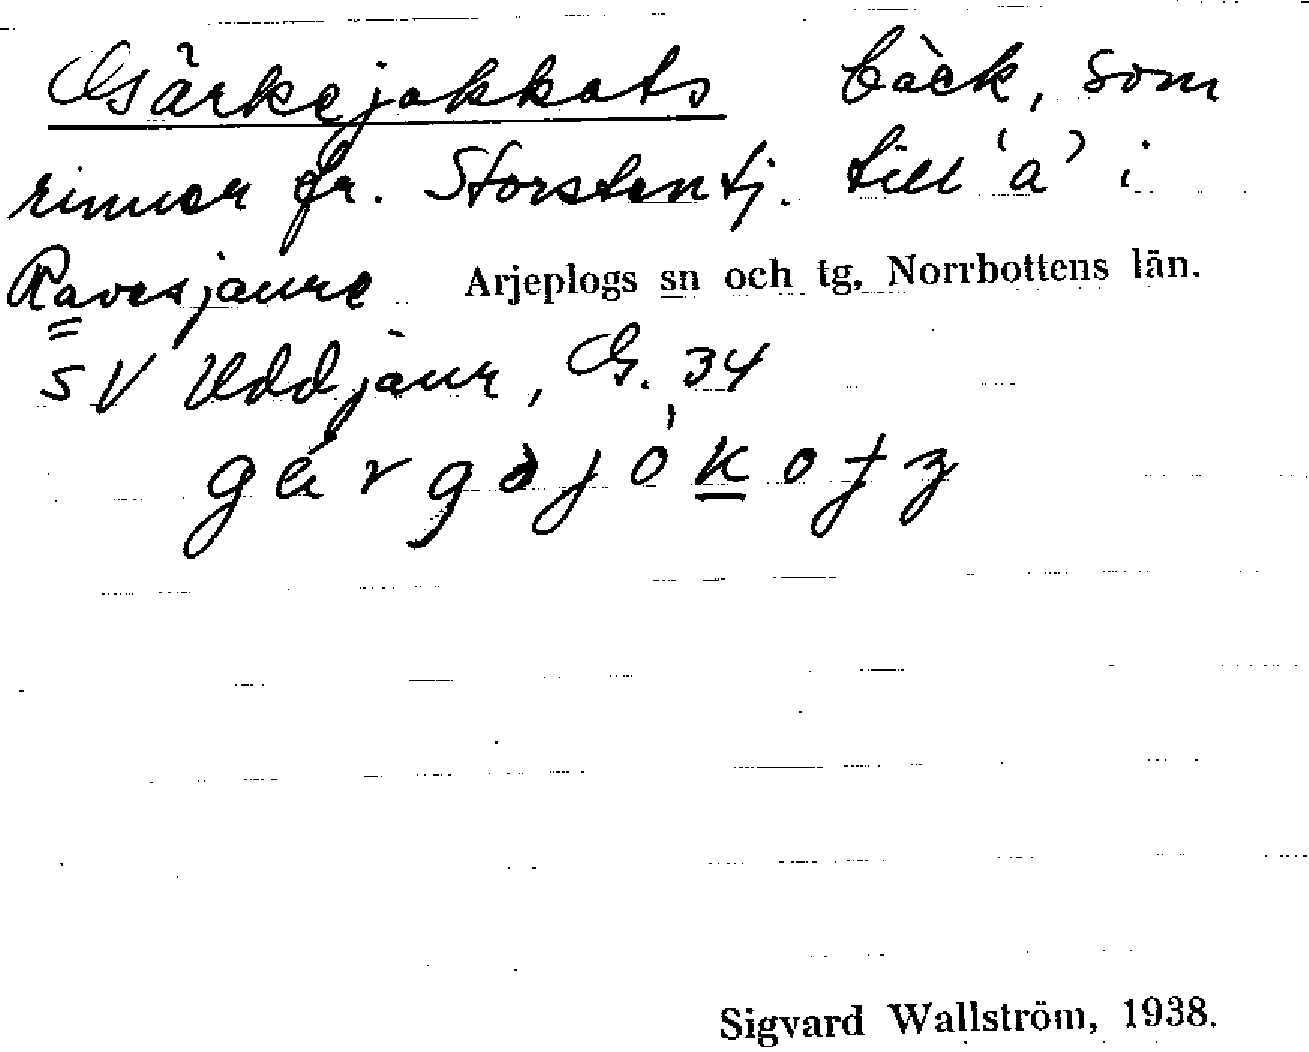 Gärkejokkats bäck, som
rinner fr. Storstentj. till 'a' i
Ravesjaure Arjeplogs sn och tg, Norrbottens län.
SV Uddjaur, G. 34
Sigvard Wallström, 1938.